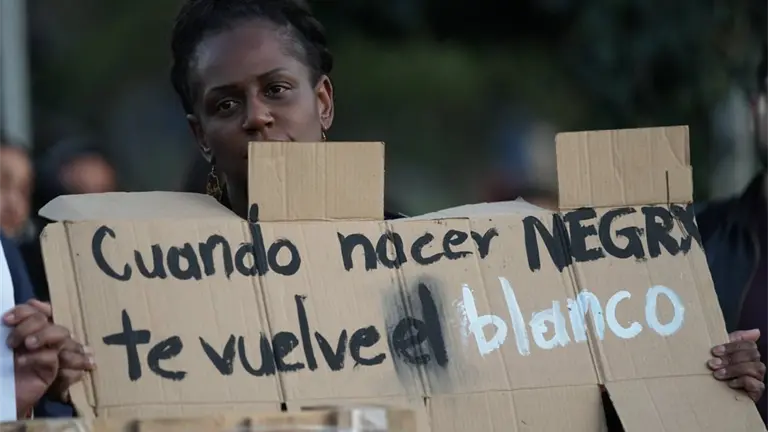 Cuando nacer NEGRX
te vuelve el blanco